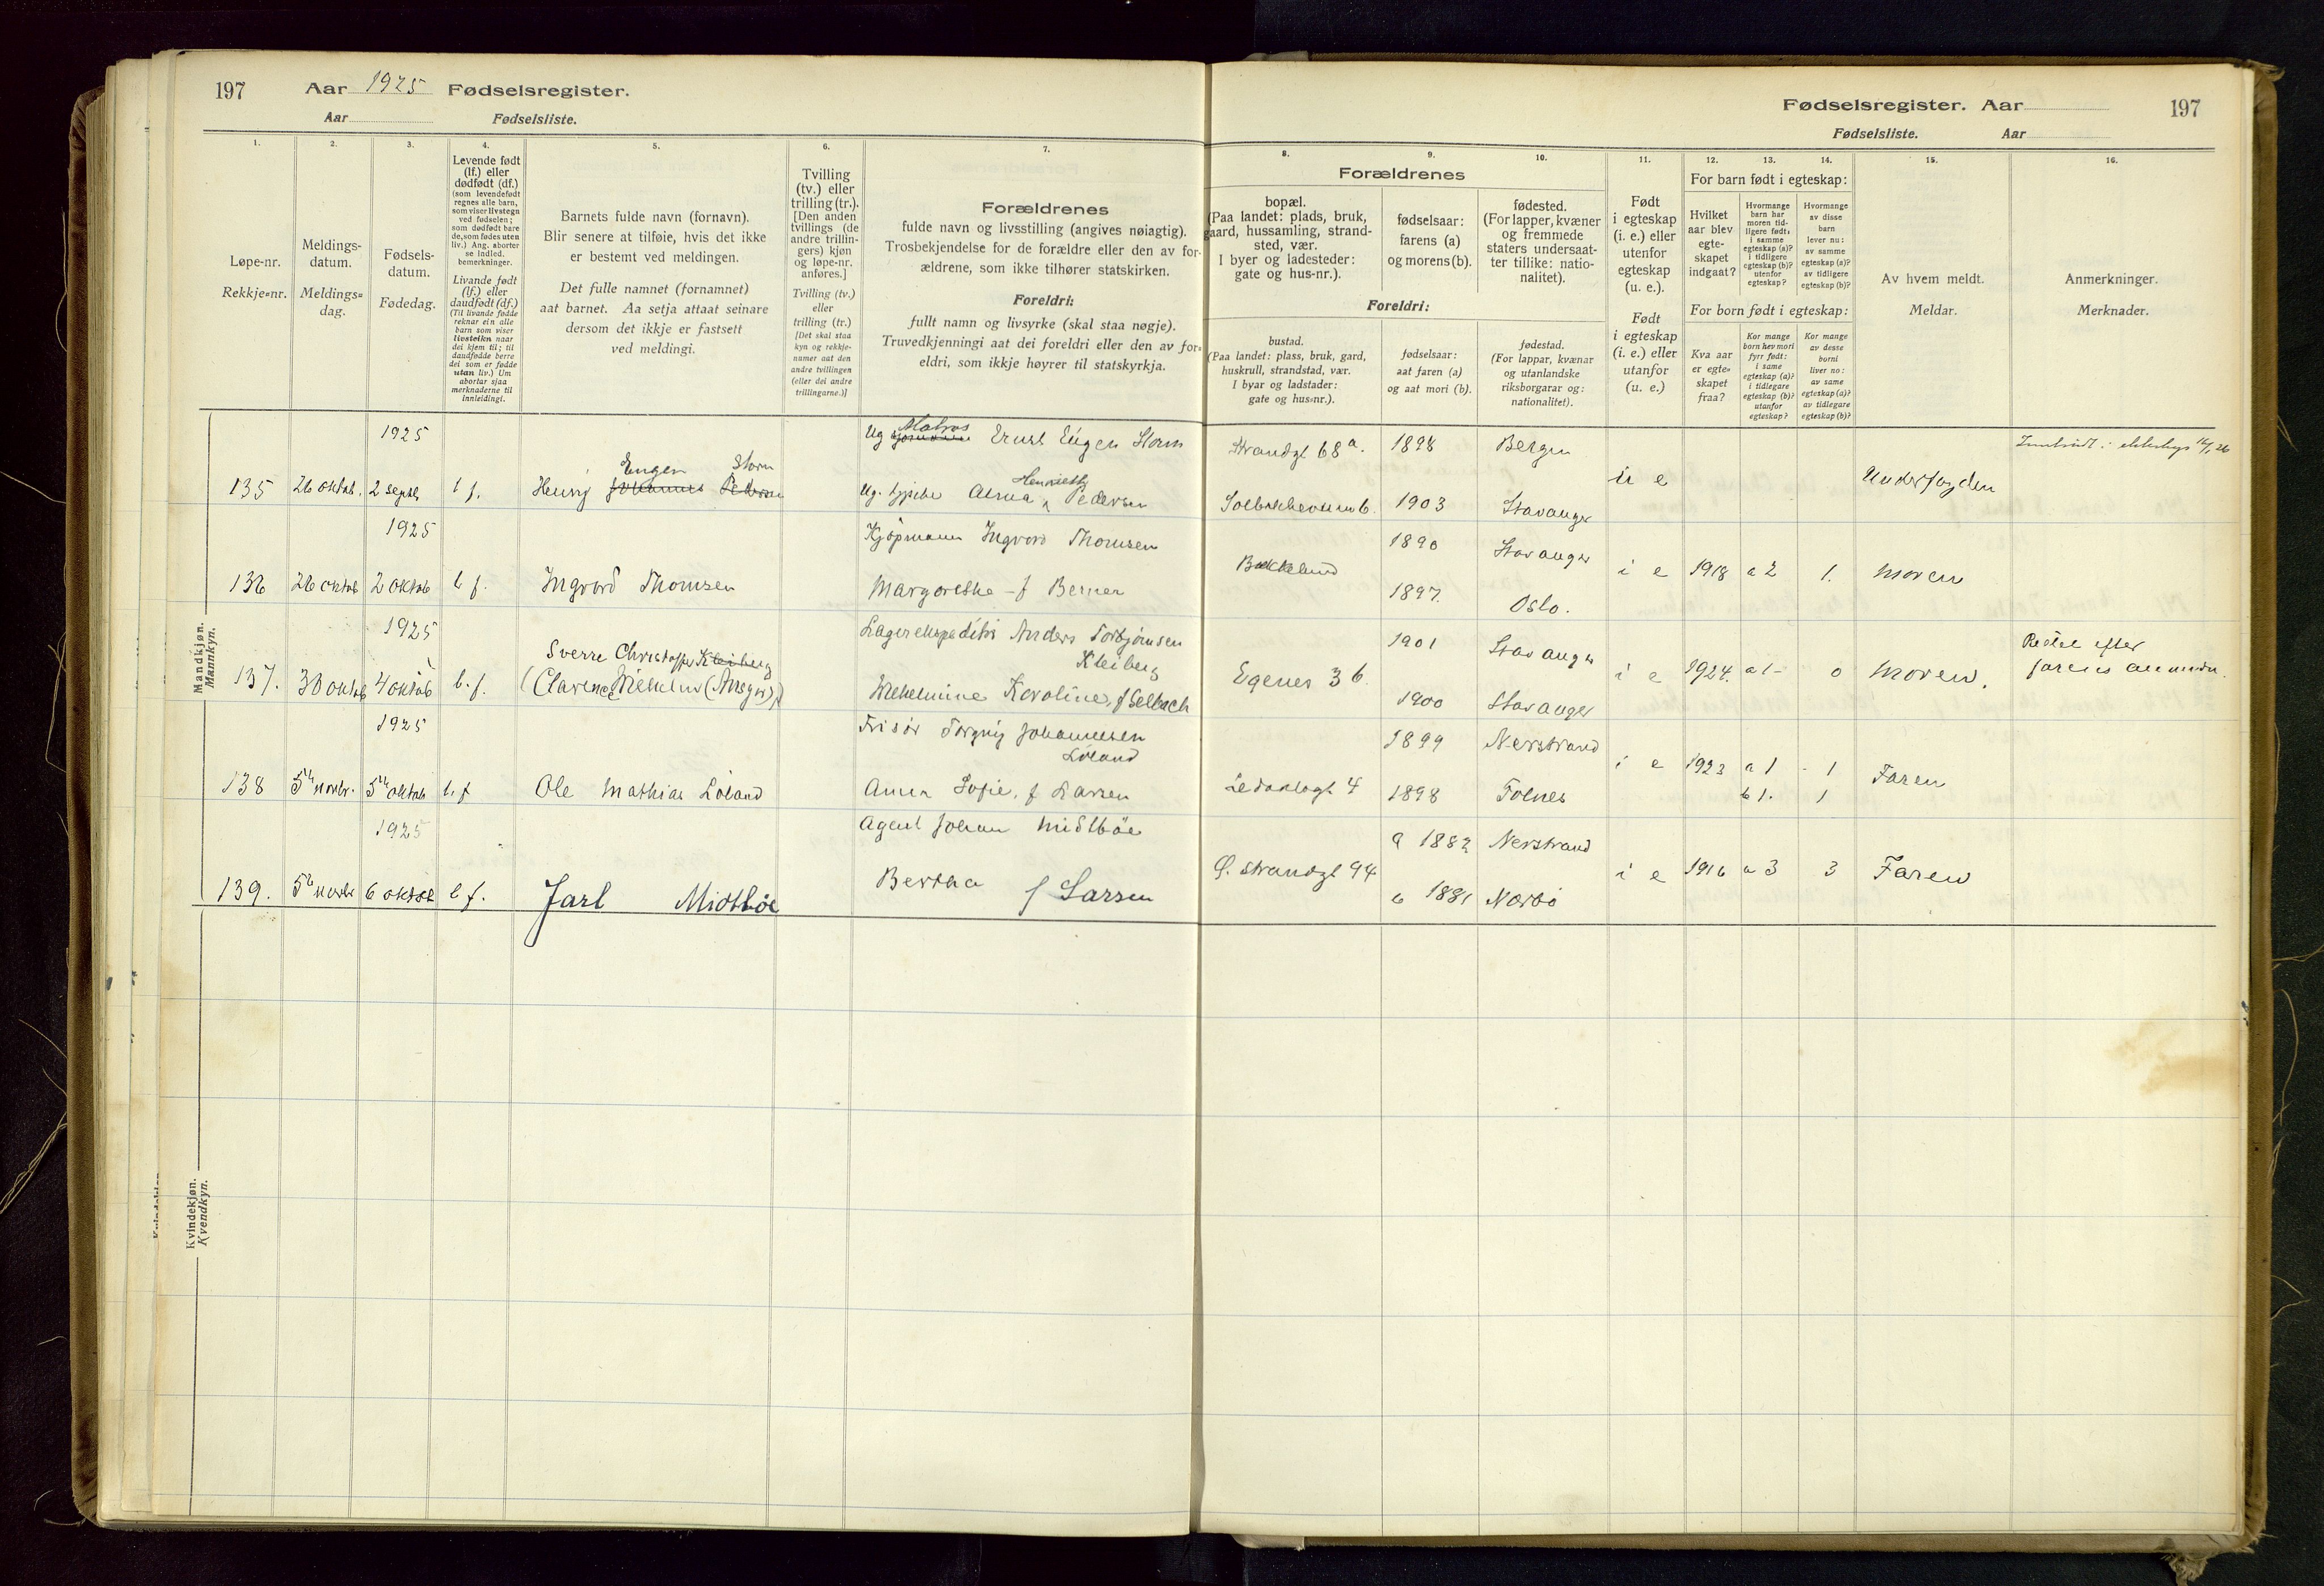 197 Aar 1925 Fødselsregister.
Aar Fødselsliste.
Fødselsregister. Aar 197
Fødselsliste. Aar
1.
Løpe-nr.
Rekkje=nr.
2.
Meldings-
datum.
Meldings=
dag.
3.
Fødsels-
datum.
Fødedag.
4.
Levende født
(lf.) eller
dødfødt (df.)
(som levendefødt
regnes alle barn,
som viser livstegn
ved fødselen;
som dødfødt bare
de, som fødes uten
liv.) Ang. aborter
se indled.
bemerkninger.
Livande født
(lf.) eller
daudfødt (df.)
(Til livande fødde
reknar ein alle
barn som viser
livsteikn naar
dei kjem til; til
daudfødde berre
dei som er fødde
utan liv.) Um
abortar sjaa
merknaderne til
innleidingi.
5.
Barnets fulde navn (fornavn).
Blir senere at tilføie, hvis det ikke
er bestemt ved meldingen.
Det fulle namnet (fornamnet)
aat barnet. Aa setja attaat seinare
dersom det ikkje er fastsett
ved meldingi.
6.
Tvilling
(tv.) eller
trilling (tr.).
[Den anden
tvillings (de
andre trillin-
gers) kjøn
og løpe-nr.
anføres.]
Tvilling (tv.)
eller
trilling (tr.)
[Det skal staa
kyn og rekkje-
numer aat den
andre tvillingen
(eller dei andre
trillingarne.)]
7.
Forældrenes
fulde navn og livsstilling (angives nøiagtig).
Trosbekjendelse for de forældre eller den av for-
ældrene, som ikke tilhører statskirken.
Foreldri:
fullt namn og livsyrke (skal staa nøgje).
Truvedkjenningi aat dei foreldri eller den av for=
eldri, som ikkje høyrer til statskyrkja.
Forældrenes
8.
bopæl.
(Paa landet: plads, bruk,
gaard, hussamling, strand-
sted, vær.
I byer og ladesteder:
gate og hus-nr.).
9.
fødselsaar:
farens (a)
og morens (b).
10.
fødested.
(For lapper, kvæner
og fremmede
staters undersaat-
ter tillike: natio-
nalitet).
Foreldri:
bustad.
(Paa landet: plass, bruk, gard,
huskrull, strandstad, vær.
I byar og ladstader:
gate og hus=nr.).
fødselsaar:
aat faren (a)
og aat mori (b).
fødestad.
(For lappar, kvænar
og utanlandske
riksborgarar og:
nationalitet).
11.
Født
i egteskap
(i. e.) eller
utenfor
egteskap
(u. e.).
Født
i egteskap
(i. e.) eller
utanfor
(u. e.)
12. 13. 14.
For barn født i egteskap:
Hvilket
aar blev
egte-
skapet
indgaat?
Hvormange
barn har
moren tid-
ligere født:
i samme
egteskap (a)?
i tidligere
egteskap (b)?
utenfor
egteskap?
Hvormange
av disse
barn
lever nu:
av samme
egteskap (a)?
av tidligere
egteskap (b)?
For born født i egteskap:
Kva aar
er egte=
skapet
fraa?
Kor mange
born hev mori
fyrr født:
i same
egteskap (a)?
i tidlegare
egteskap (b)?
utanfor
egteskap?
Kor mange
av desse
borni
liver no:
av same
egteskap (a)?
av tidlegare
egteskap (b)?
15.
Av hvem meldt.
Meldar.
16.
Anmerkninger.
Merknader.
Mandkjøn.
Mannkyn.
1925
135 26 oktob. 2 septb. l f. Henry Eugen Storm Johannes Pedersen
Ug Matros Ernst Eugen Storm
Ug. Alma Henriette Pedersen
Strandgt 68 a. 1898 Bergen
1903 Stavanger
i e Underfogden
1925
136 26 oktob 2 oktob l f. Ingvard Thomsen
Kjøpmann Ingvard Thomsen
Margarethe f Berner
1890 Stavanger
1897. Oslo.
i e 1918 a 2 1. moren
1925
137. 30 oktob 4 oktob l. f. Sverre Christoffer Kleiberg
(Clarence Wilhelm (Ansgar))
Lagerekspeditør Anders Torbjørnsen
Kleiberg
Wilhelmine Karoline, f Selbach
Egenes 36 1901 Stavanger
1900 Stavanger
i e 1924. a 1 - 0 moren.
Rettet efter
farens
1925
138 5te novbr. 5te oktob l. f Ole Mathias Løland
Frisør Torgny Johannesen
Løland
Anna Sofie, f Larsen
Ledaalsgt 4 1899 Nerstrand
1898 Folnes
i e 1923 a 1 - 1
b 1. 1
Faren
1925
139. 5te novbr 6 oktob l f. Jarl Midtbøe
Agent Johan Midtbøe
Bertha f Larsen
Ø. Strandgt 94 a 1882 Nerstrand
b 1881 Nærbø
i e 1916 a 3 3 Faren
Kvindekjøn.
Kvendkyn.